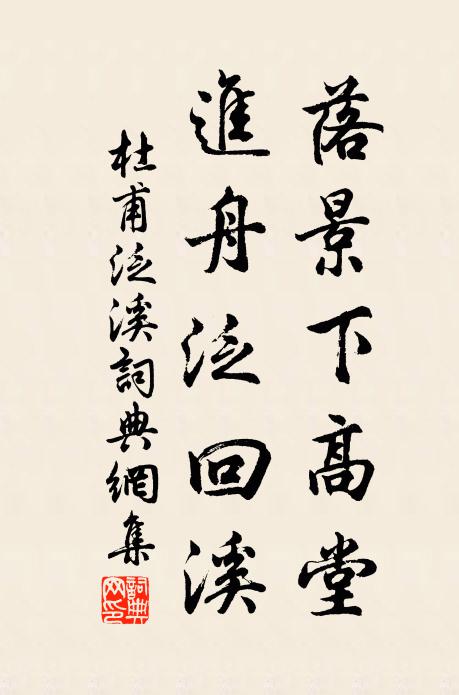 落景下高堂
進舟泛回溪
杜甫泛溪詞典網集
詞典网印